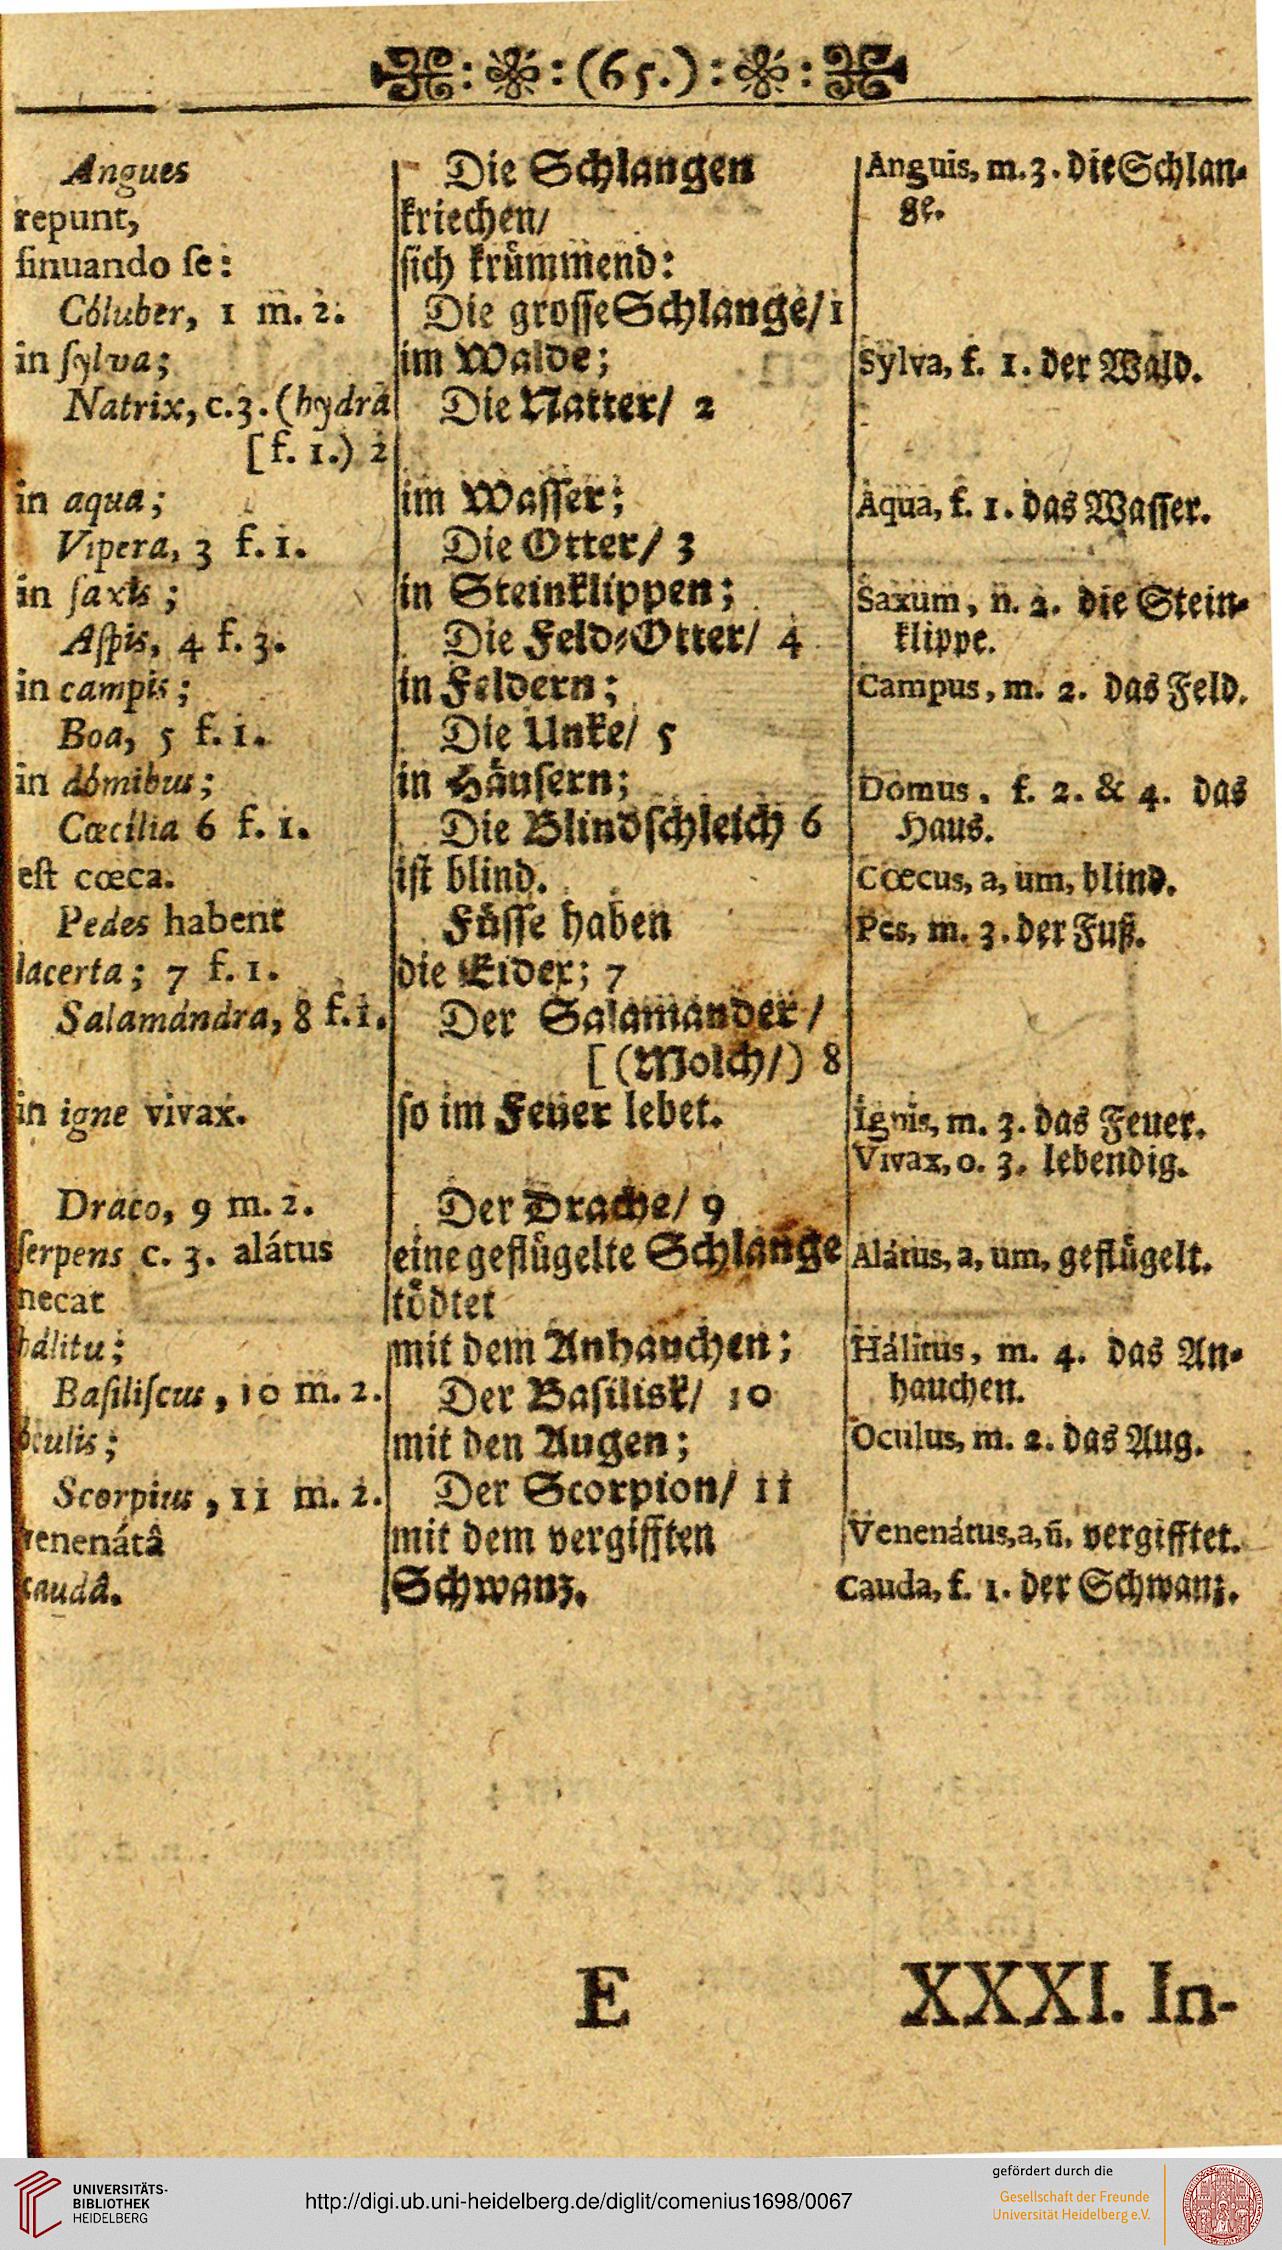 (65.)
Angues
repunt,
sinuando se:
Cóluber, 1 m. 2.
in sylva;
Natrix, c. 3. (hydra
[f. 1.) 2
in aqua;
Vipera, 3 f. 1.
in saxis;
Aspis, 4 f. 3.
in campis;
Boa, 5 f. 1.
in dómibus;
Cæcilia 6 f. 1.
est cœca.
Pedes habent
lacerta; 7 f. 1.
Salamándra, 8 f. 1.
in igne vivax.
Draco, 9 m. 2.
serpens c. 3. alátus
necat
hálitu;
Basiliscus, 10 m. 2.
óculis;
Scorpius, 11 m. 2.
venenátâ
caudâ.
Die Schlangen
kriechen/
sich krümmend:
Die grosse Schlange/ 1
im Walde;
Die Natter/ 2
im Wasser;
Die Otter/ 3
in Steinklippen;
Die Feld-Otter/ 4
in Feldern;
Die Unke/ 5
in Häusern;
Die Blindschleich 6
ist blind.
Füsse haben
die Eidex; 7
Der Salamander/
[(Molch/) 8
so im Feuer lebet.
Der Drache/ 9
eine geflügelte Schlange
tödtet
mit dem Anhauchen;
Der Basilisk/ 10
mit den Augen;
Der Scorpion/ 11
mit dem vergifften
Schwanz.
Anguis, m. 3. die Schlan-
ge.
Sylva, f. 1. der Wald.
Aqua, f. 1. das Wasser.
Saxum, n. 2. die Stein-
klippe.
Campus, m. 2. das Feld.
Domus, f. 2. & 4. das
Haus.
Cœcus, a, um, blind.
Pes, m. 3. der Fuß.
Ignis, m. 3. das Feuer.
Vivax, o. 3. lebendig.
Alátus, a, um, geflügelt.
Hálitus, m. 4. das An-
hauchen.
Oculus, m. 2. das Aug.
Venenátus, a, ũ, vergifftet.
Cauda, f. 1. der Schwanz.
E
XXXI. In-
UNIVERSITÄTS-
BIBLIOTHEK
HEIDELBERG
http://digi.ub.uni-heidelberg.de/diglit/comenius1698/0067
gefördert durch die
Gesellschaft der Freunde
Universität Heidelberg e.V.